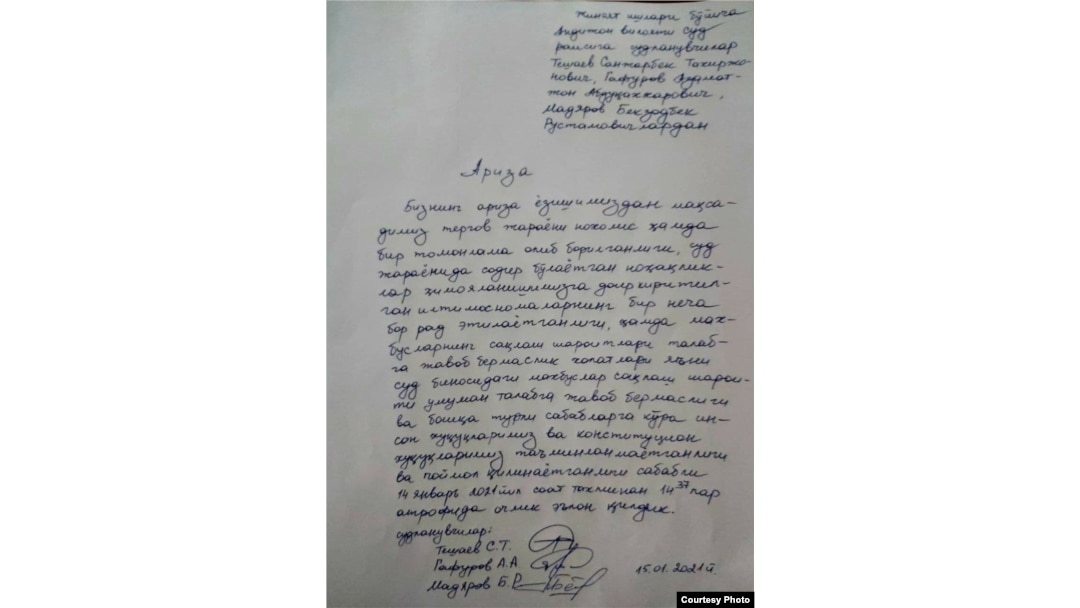 Жиноят ишлари бўйича
Андижон вилояти суд
раисига судланувчилар
Тешаев Санжарбек Тахиржо-
нович, Гафуров Азамат-
жон Абдуқаххарович,
Мадяров Бекзодбек
Рустамовичлардан
Ариза
Бизнинг ариза ёзишимиздан мақса-
димиз тергов жараёни нохолис ҳамда
бир томонлама олиб борилганлиги, суд
жараёнида содир бўлаётган ноҳақлик-
лар ҳимояланишимизга доир киритил-
ган илтимосномаларнинг бир неча
бор рад этилаётганлиги, ҳамда мах-
бусларнинг сақлаш шароитлари талаб-
га жавоб бермаслик холатлари яъни
суд биносидаги махбуслар сақлаш шарои-
ти умуман талабга жавоб бермаслиги
ва бошқа турли сабабларга кўра ин-
сон хуқуқларимиз ва конституцион
хуқуқларимиз таъминланмаётганлиги
ва поймол қилинаётганлиги сабабли
14 январь 2021 йил соат тахминан 14 37 лар
атрофида очлик эълон қилдик.
судланувчилар:
Тешаев С.Т.
Гафуров А.А
Мадяров Б.Р
15.01.2021 й.
Courtesy Photo